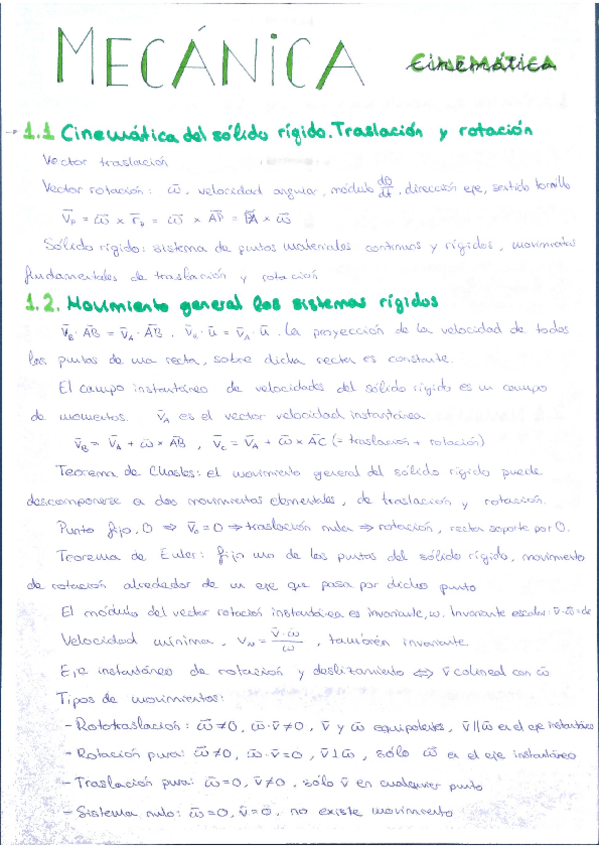 MECÁNICA Cinemática
→ 1.1 Cinemática del sólido rígido. Traslación y rotación
Vector traslación
Vector rotación: ω̄, velocidad angular, módulo dθ/dt, dirección eje, sentido tornillo
V̄ₚ = ω̄ × r̄ₚ = ω̄ × AP̄ = P̄A × ω̄
Sólido rígido: sistema de puntos materiales continuos y rígidos, movimientos
fundamentales de traslación y rotación
1.2. Movimiento general los sistemas rígidos
v̄_B · ĀB = v̄_A · ĀB. v̄_B · ū = v̄_A · ū. La proyección de la velocidad de todos
los puntos de una recta, sobre dicha recta es constante.
El campo instantáneo de velocidades del sólido rígido es un campo
de momentos. v̄_A es el vector velocidad instantánea
v̄_B = v̄_A + ω̄ × ĀB, v̄_C = v̄_A + ω̄ × ĀC (= traslación + rotación)
Teorema de Chasles: el movimiento general del sólido rígido puede
descomponerse a dos movimientos elementales, de traslación y rotación.
Punto fijo, O ⇒ v̄₀ = 0 ⇒ traslación nula ⇒ rotación, recta soporte por O.
Teorema de Euler: fijo uno de los puntos del sólido rígido, movimiento
de rotación alrededor de un eje que pasa por dicho punto
El módulo del vector rotación instantánea es invariante, ω. Invariante escalar: v̄·ω̄=cte
Velocidad mínima, v_M = v̄·ω̄/ω, también invariante.
Eje instantáneo de rotación y deslizamiento ⇔ v̄ colineal con ω̄
Tipos de movimientos:
- Rototraslación: ω̄≠0, ω̄·v̄≠0, v̄ y ω̄ equipolentes, v̄∥ω̄ en el eje instantáneo
- Rotación pura: ω̄≠0, ω̄·v̄=0, v̄⊥ω̄, sólo ω̄ en el eje instantáneo
- Traslación pura: ω̄=0, v̄≠0, sólo v̄ en cualquier punto
- Sistema nulo: ω̄=0, v̄=0, no existe movimiento